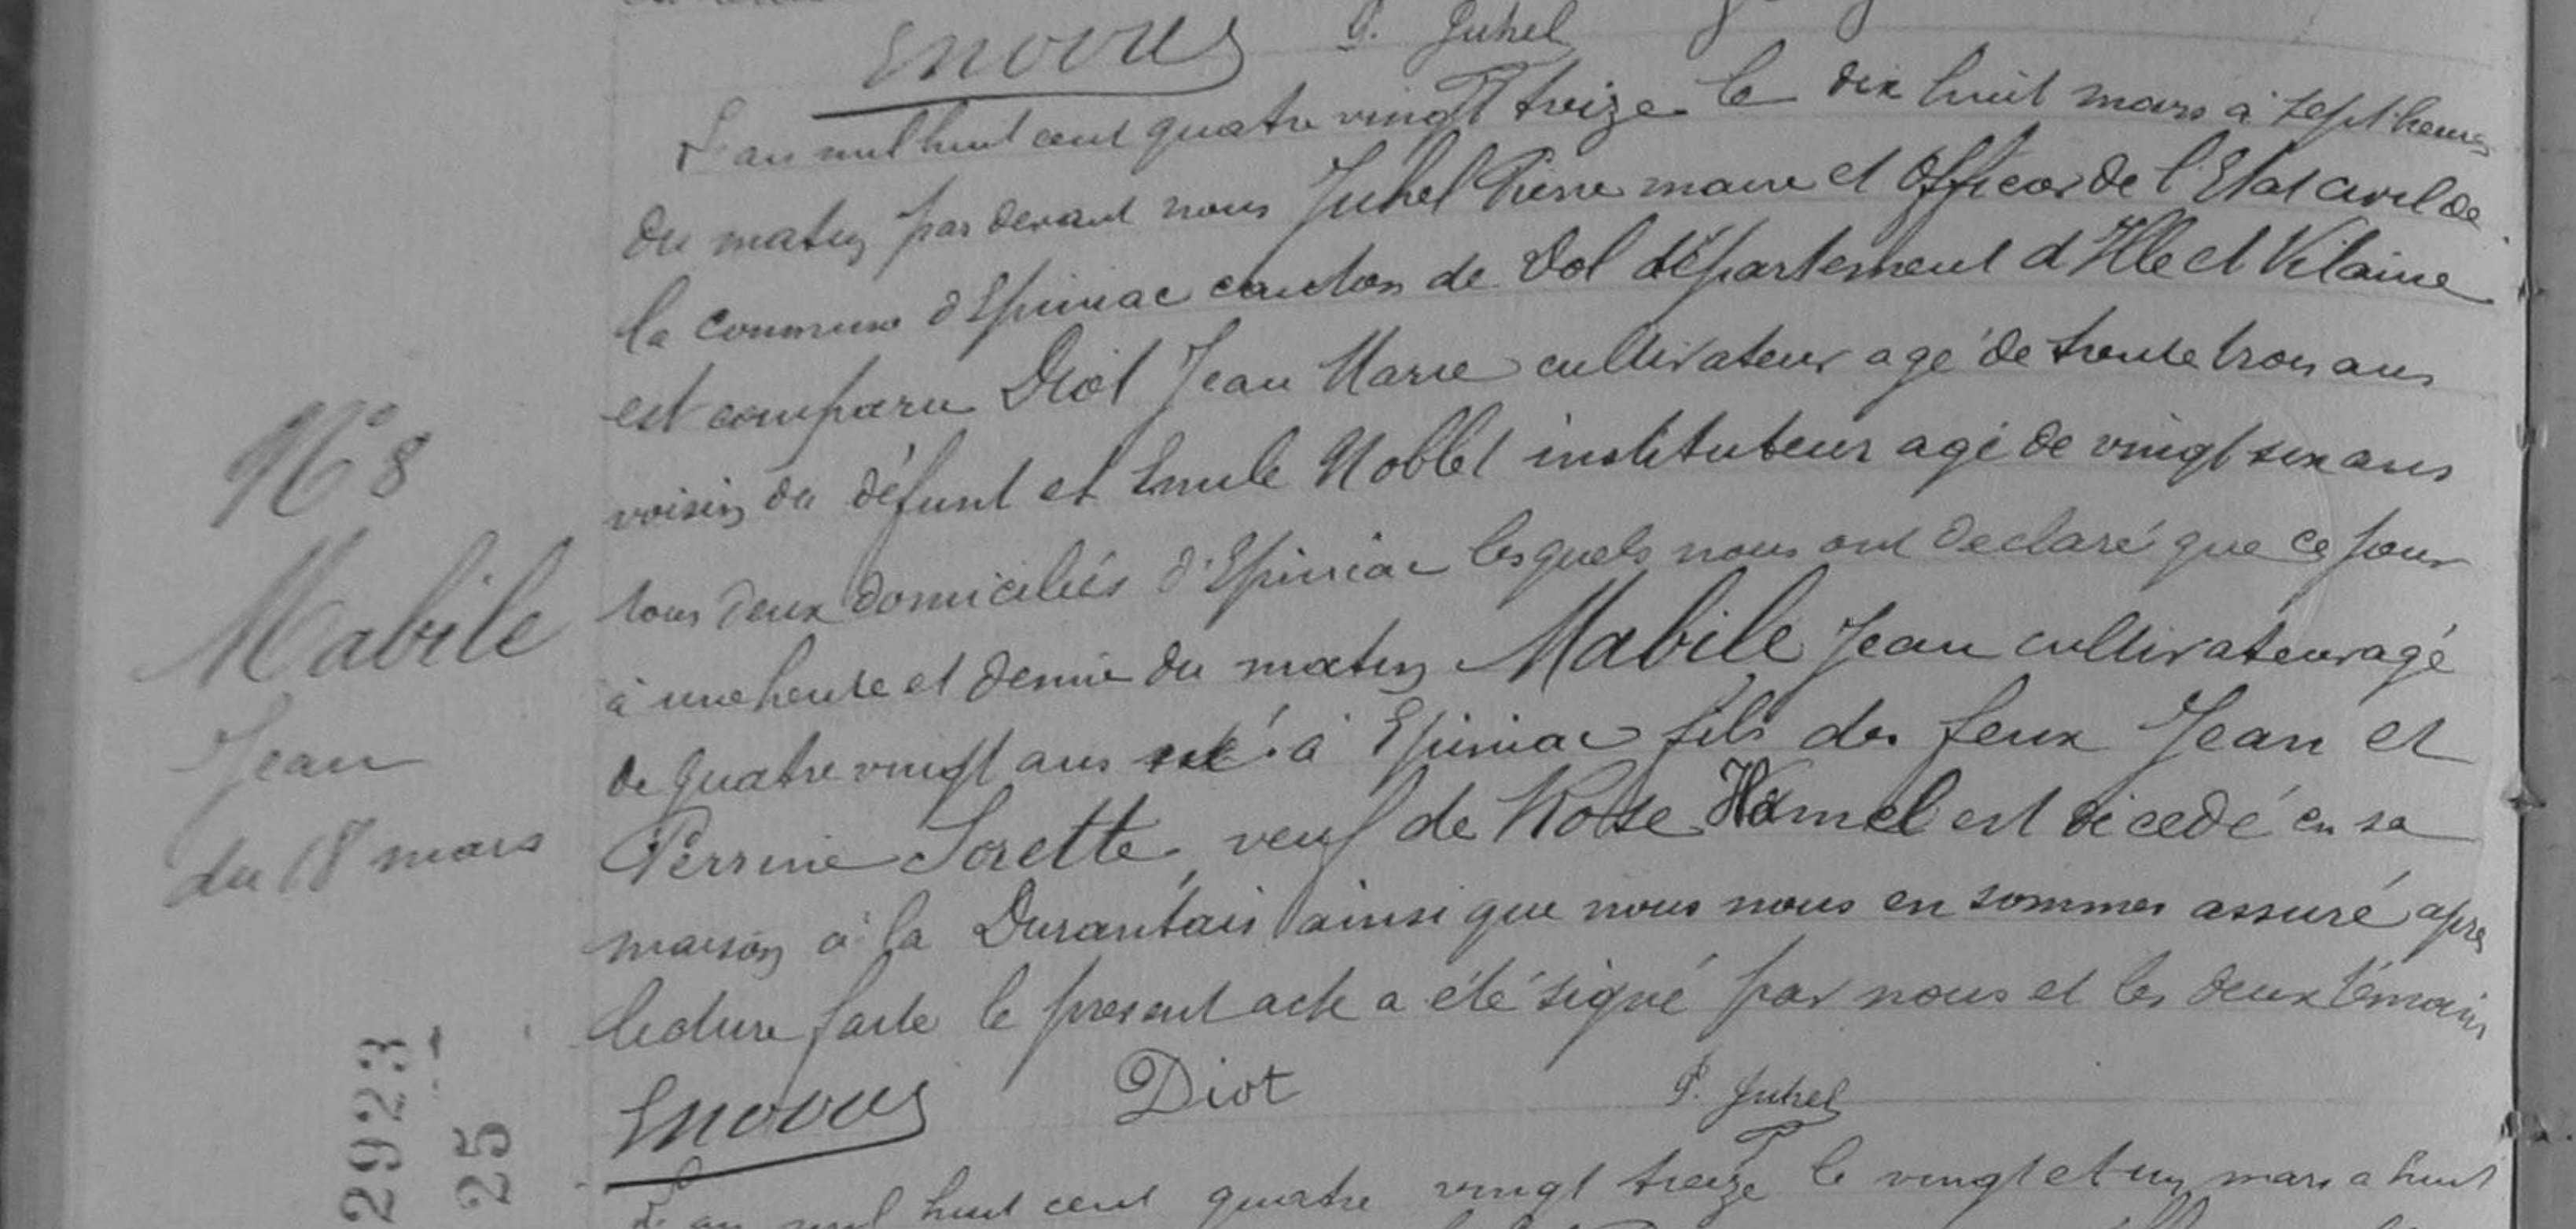 P. Juhel
L'an mil huit cent quatre vingt treize le dix huit mars à sept heures
du matin par devant nous Juhel Pierre maire et officier de l'Etat civil de
la commune d'Epiniac canton de Dol département d'Ille et Vilaine
est comparu Diot Jean Marie cultivateur agé de trente trois ans
voisin du défunt et Emile Noblet instituteur agé de vingt six ans
tous deux domiciliés d'Epiniac lesquels nous ont declaré que ce jour
à une heure et demie du matin Mabile Jean cultivateur agé
de quatre vingt ans né à Epiniac fils de feux Jean et
Perrine Sorette, veuf de Rose Hamel est décedé en sa
maison à la Durantais ainsi que nous nous en sommes assuré après
lecture faite le present acte a été signé par nous et les deux témoins
Diot P. Juhel
L'an mil huit cent quatre vingt treize le vingt et un mars a huit
N° 8
Mabile
Jean
du 18 mars
2923
25